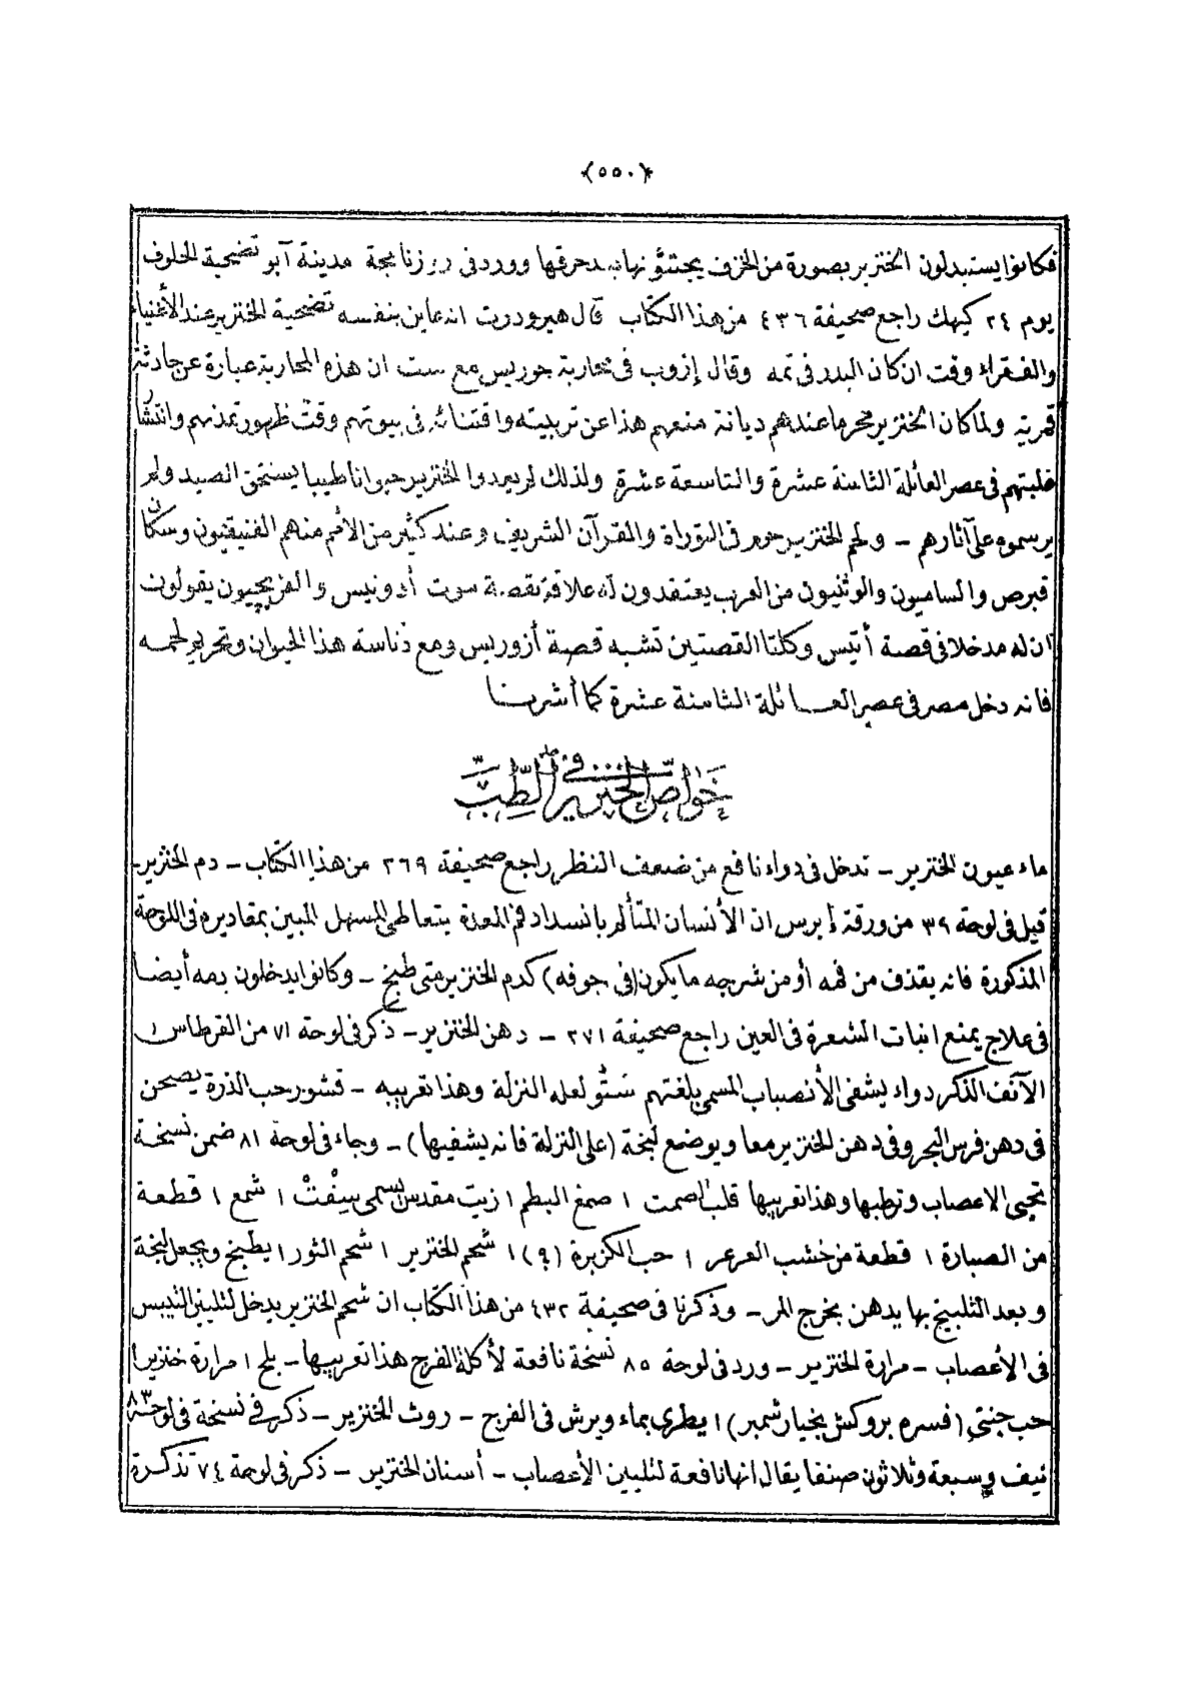 (٥٥٠)
فكانوا يستبدلون الخنزير بصورة من الخزف يجتنؤنها بعد حرقها وورد فى روزنامجة مدينة آبو تضحية الخلوف
يوم ٢٤ كيهك راجع صحيفة ٤٣٦ من هذا الكتاب قال هيرودرت انه عاين بنفسه تضحية الخنزير عند الأغنياء
والفقراء وقت ان كان البدر فى تمه وقال إزوب فى محاربة حوريس مع ست ان هذه المحاربة عبارة عن حادثة
قمرية ولما كان الخنزير محرما عندهم ديانة منعهم هذا عن تربيته واقتنائه فى بيوتهم وقت ظهور تمدنهم وانتشار
غلبتهم فى عصر العائلة الثامنة عشرة والتاسعة عشرة ولذلك لم يعدوا الخنزير حيوانا طيبا يستحق الصيد ولم
يرسموه على آثارهم - ولحم الخنزير حرم فى التوراة والقرآن الشريف وعند كثير من الأمم منهم الفنيقيون وسكان
قبرص والساميون والوثنيون من العرب يعتقدون له علاقة بقصة موت أدونيس والفريجيون يقولون
ان له مدخلا فى قصة أتيس وكلتا القصتين تشبه قصة أزوريس ومع دناسة هذا الحيوان وتحريم لحمه
فانه دخل مصر فى عصر العائلة الثامنة عشرة كما أشرنا
خواص الخنزير فى الطب
ماء عيون الخنزير - تدخل فى دواء نافع من ضعف النظر راجع صحيفة ٢٦٩ من هذا الكتاب - دم الخنزير
قيل فى لوحة ٣٩ من ورقة إبرس ان الأنسان المتألم بانسداد فم المعدة يتعاطى المسهل المبين بمقاديره فى اللوحة
المذكورة فانه يقذف من فمه أو من شرجه ما يكون (فى جوفه) كدم الخنزير متى طبخ - وكانوا يدخلون دمه أيضا
فى علاج يمنع انبات الشعرة فى العين راجع صحيفة ٢٧١ - دهن الخنزير - ذكر فى لوحة ٧١ من القرطاس
الآنف الذكر دواء يشفى الأنصباب المسمى بلغتهم ستو لعله النزلة وهذا تعريبه - قشور حب الذرة يصحن
فى دهن فرس البحر وفى دهن الخنزير معا ويوضع لبخة (على النزلة فانه يشفيها) - وجاء فى لوحة ٨١ ضمن نسخة
تحيى الاعصاب وترطبها وهذا تعريبها قلب الصمت ١ صمغ البطم ١ زيت مقدس يسمى سِفْت ١ شمع ١ قطعة
من الصبارة ١ قطعة من خشب العرعر ١ حب الكزبرة (؟) ١ شحم الخنزير ١ شحم الثور ١ يطبخ ويجعل لبخة
وبعد التلبيخ بها يدهن بخرج المر - وذكرنا فى صحيفة ٤٣٢ من هذا الكتاب ان شحم الخنزير يدخل لتليين التيبس
فى الأعصاب - مرارة الخنزير - ورد فى لوحة ٨٥ نسخة نافعة لأكلة الفرج هذا تعريبها - بلح ١ مرارة خنزير ١
حب جنتى (فسره بروكش بخيار شمبر) ١ يطرى بماء ويرش فى الفرج - روث الخنزير - ذكر فى نسخة فى لوحة ٨٣
نيف وسبعة وثلاثون صنفا يقال انها نافعة لتليين الأعصاب - أسنان الخنزير - ذكر فى لوحة ٧٤ تذكرة